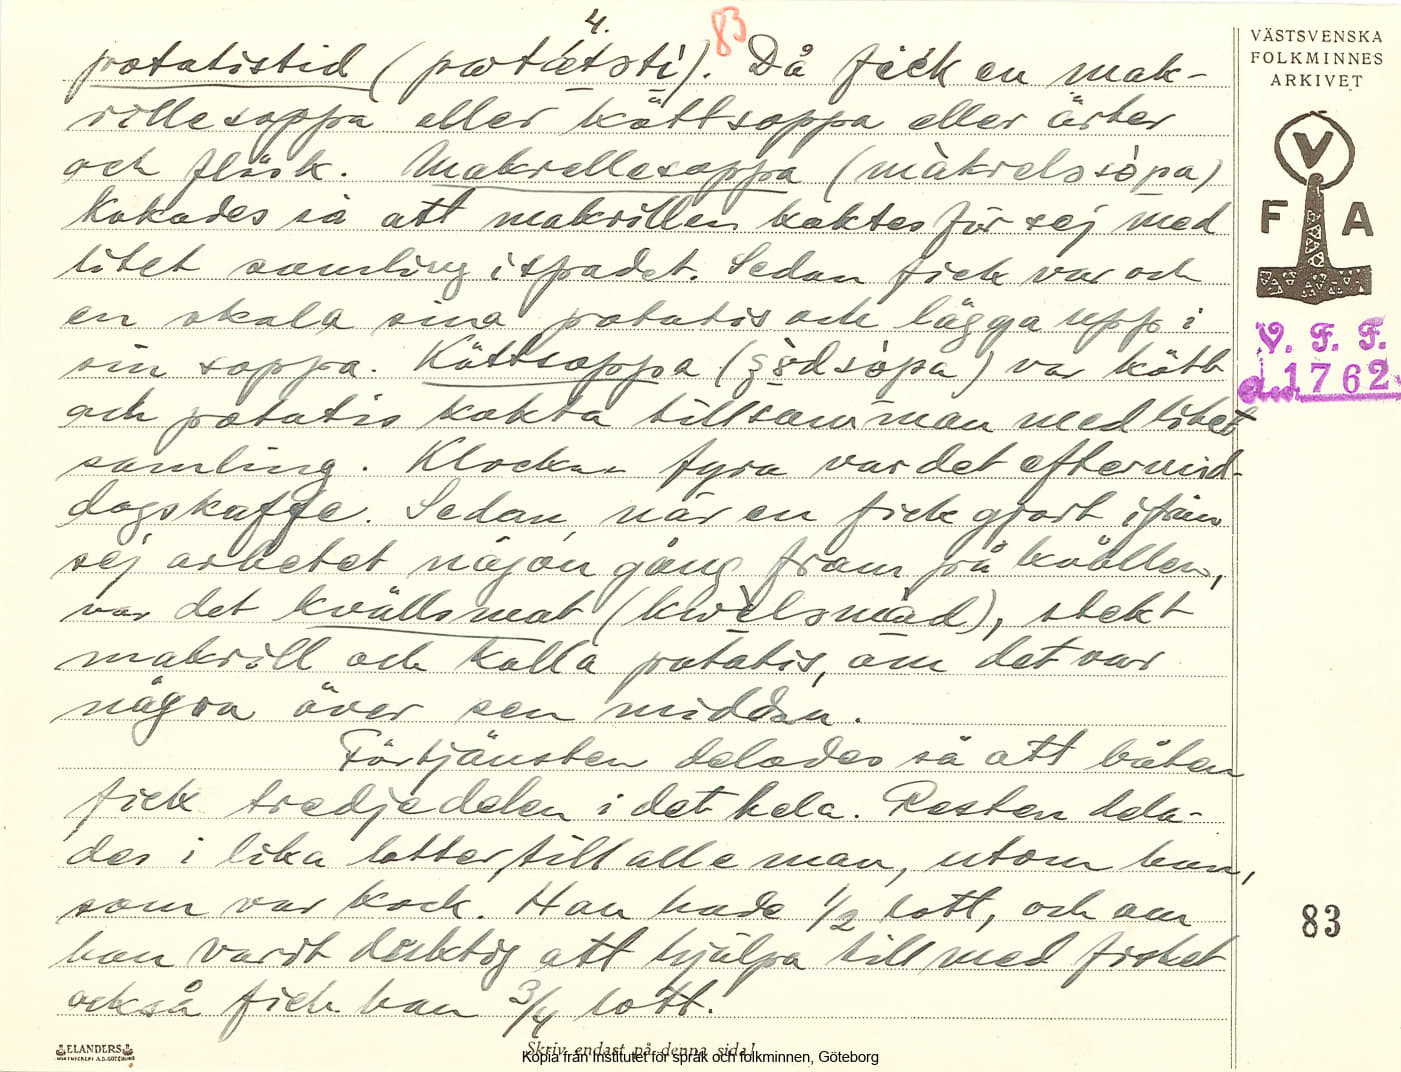 4.
83
potatistid (pœtǽtsti). Då fick en mak-
rillesoppa eller köttsoppa eller ärter
och fläsk. Makrellesoppa (màkrelssòpa)
kokades så att makrillen koktes för sej med
litet samling i spadet. Sedan fick var och
en skala sina potatis och lägga upp i
sin soppa. Köttsoppa var kött
och potatis kokta tillsamman med litet
samling. Klockan fyra var det eftermid-
dagskaffe. Sedan, när en fick gjort ifrån
sej arbetet någon gång fram på kvällen,
var det kvällsmat (kwèlsmàd), stekt
makrill och kalla potatis, om det var
några över sen middan.
Förtjänsten delades så att båten
fick tredjedelen i det hela. Resten dela-
des i lika lotter till alle man, utom han,
som var kock. Han hade 1/2 lott, och om
han varit duktig att hjälpa till med fisket
också fick han 3/4 lott.
VÄSTSVENSKA
FOLKMINNES
ARKIVET
V
F A
V. F. F.
1762
83
ELANDERS
Skriv endast på denna sida!
Kopia från Institutet för språk och folkminnen, Göteborg